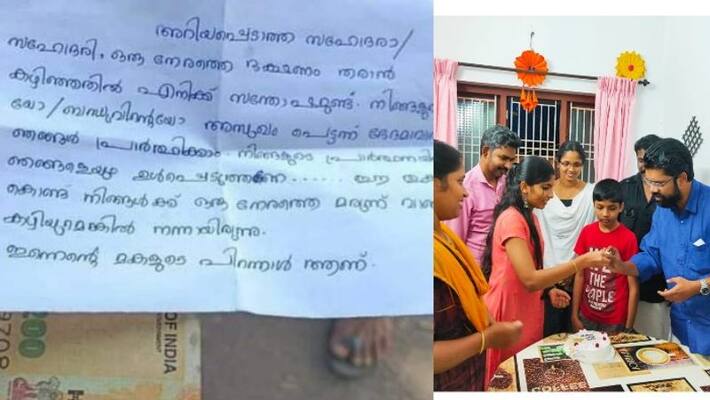 അറിയപ്പെടാത്ത സഹോദരാ/
സഹോദരി, ഒരു നേരത്തെ ഭക്ഷണം തരാൻ
കഴിഞ്ഞതിൽ എനിക്ക് സന്തോഷമുണ്ട്.
യോ/ബന്ധുവിന്റെയോ അസുഖം പെട്ടന്ന് ഭേദമാവാൻ
ഞങ്ങൾ പ്രാർത്ഥിക്കാം. നിങ്ങളുടെ
ഞങ്ങളെയും ഉൾപ്പെടുത്തണേ.......
കൊണ്ട് നിങ്ങൾക്ക് ഒരു നേരത്തെ മരുന്ന്
കഴിയുമെങ്കിൽ നന്നായിരുന്നു.
ഇന്നെന്റെ മകളുടെ പിറന്നാൾ ആണ്.
200
9708
OF INDIA
WE ARE
THE
PEOPLE
COFFEE